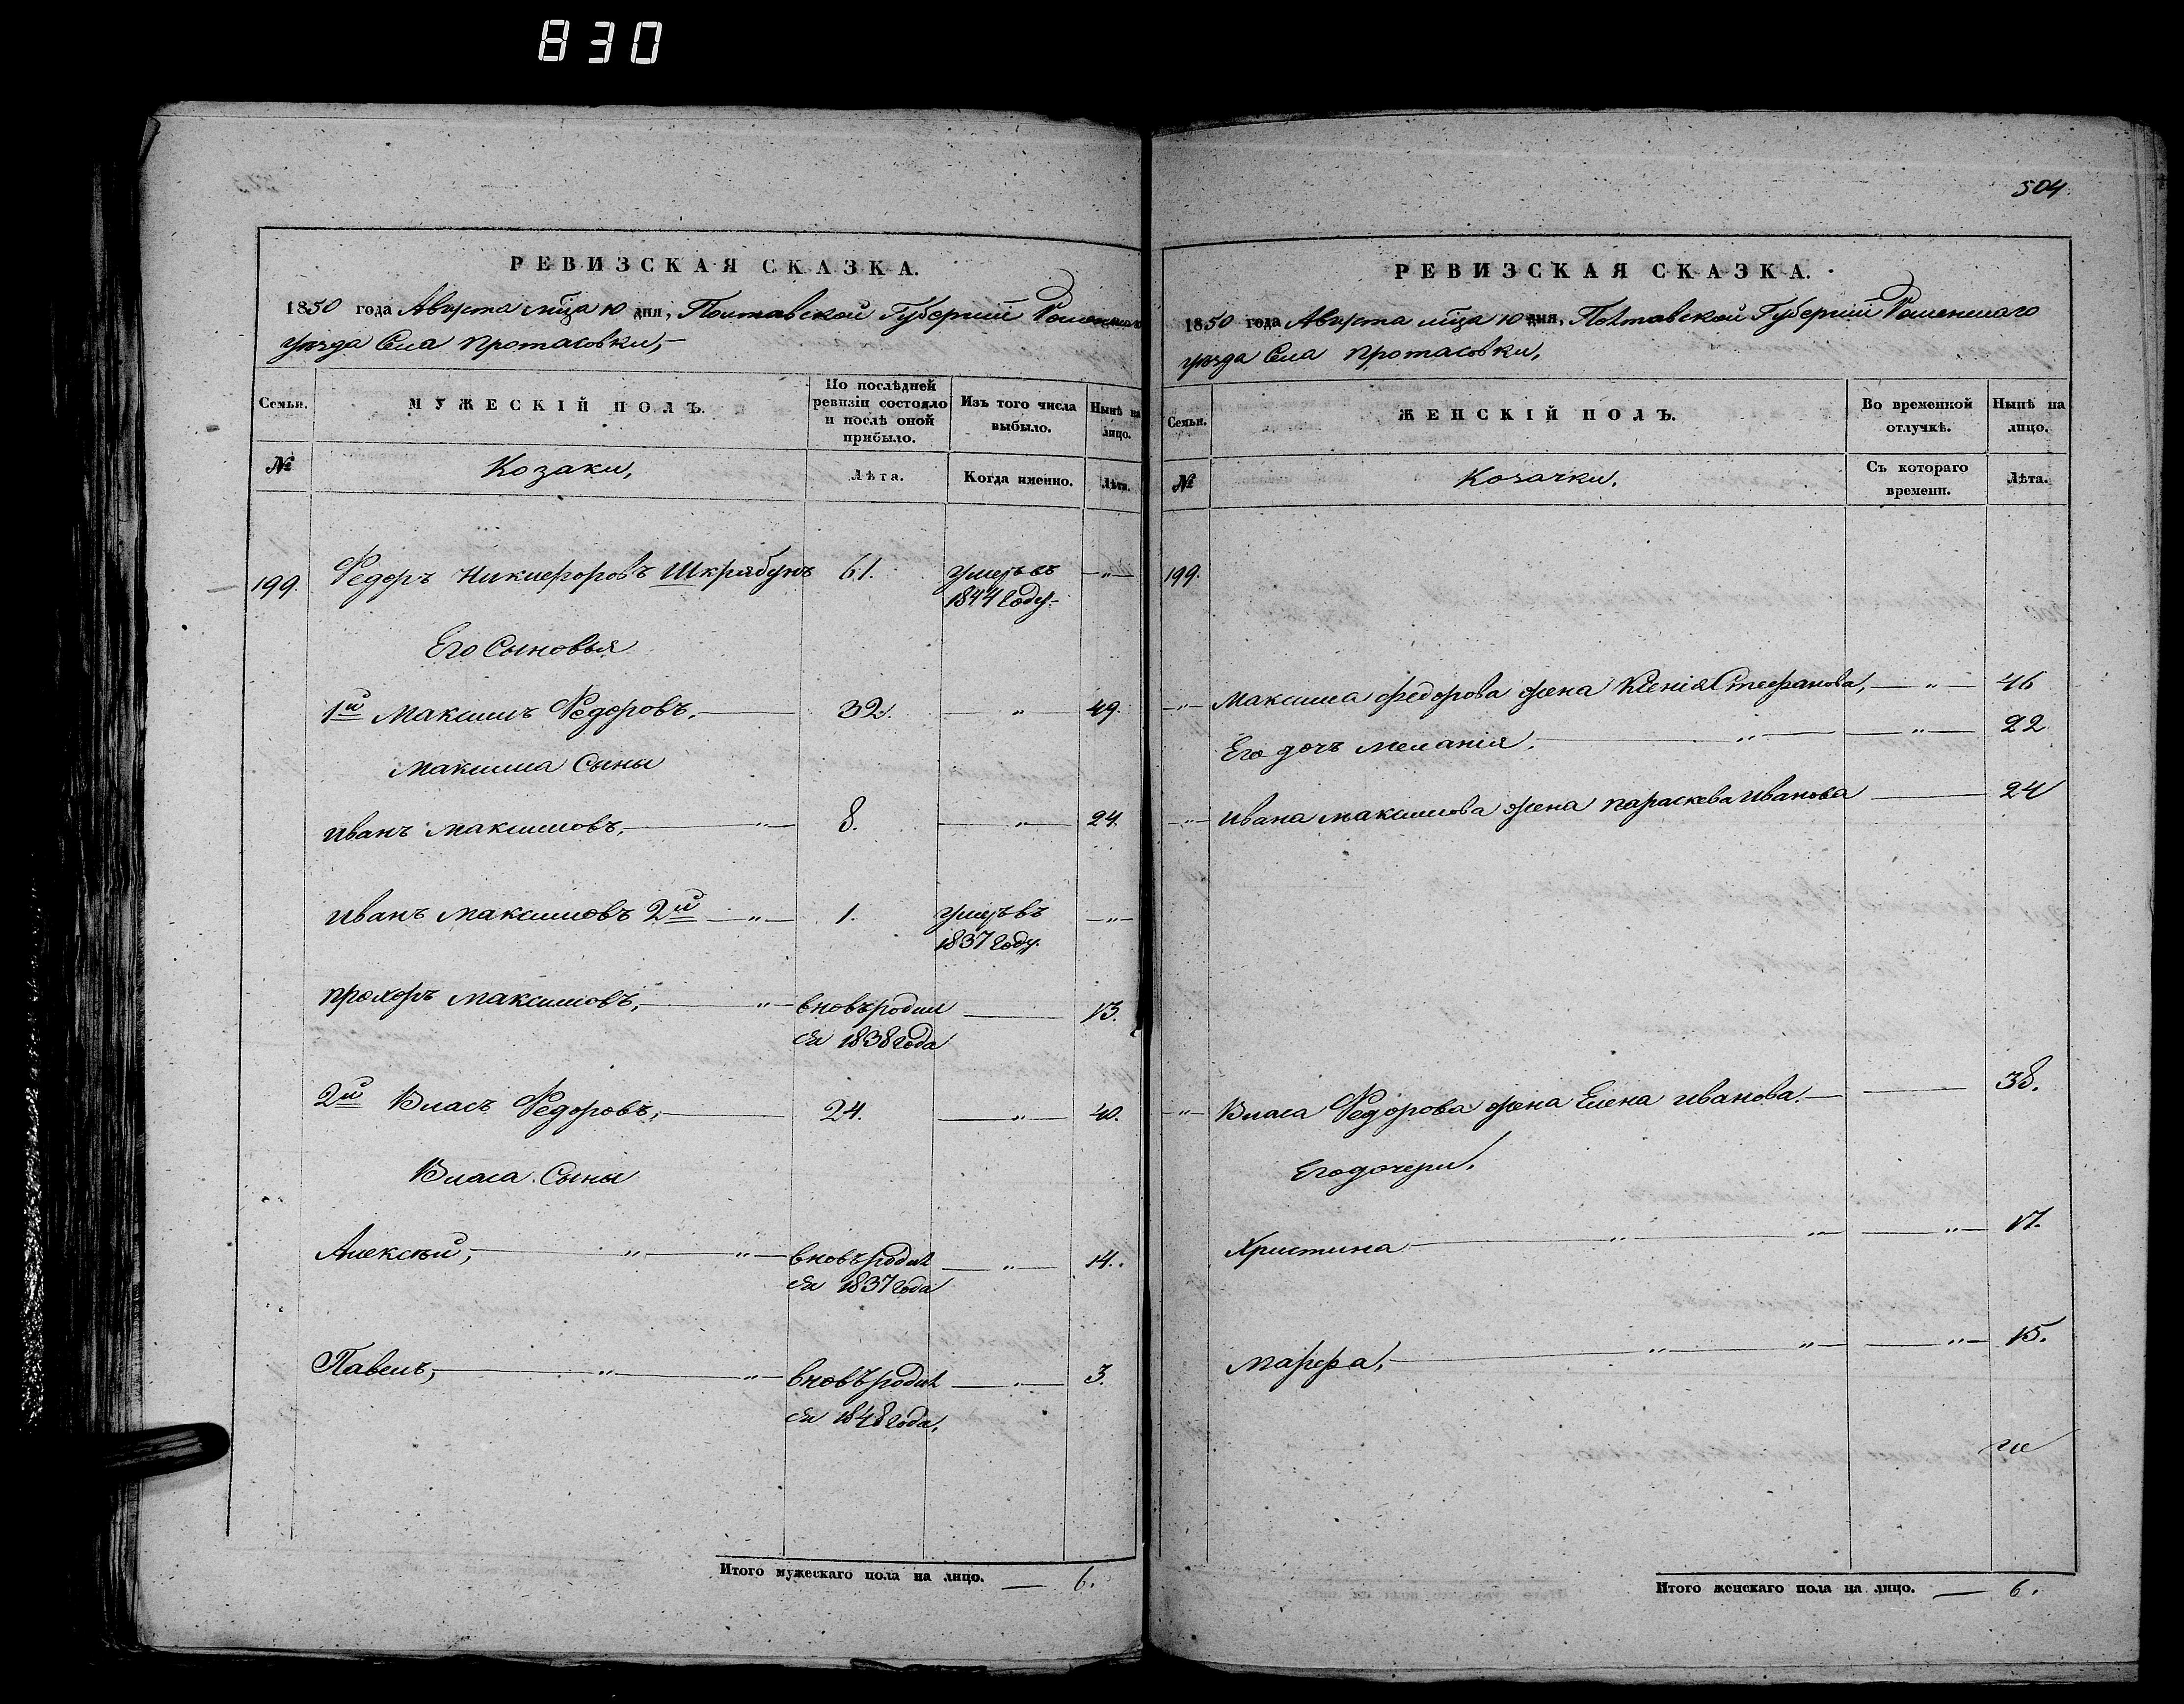 830
РЕВИЗСКАЯ СКАЗКА.
1850 года Августа мца 10 дня, Полтавской Губернии Роменскаго
уезда Села Протасовки,
Семьи. МУЖЕСКІЙ ПОЛЪ. По последней ревизіи состояло и после оной прибыло. Изъ того числа выбыло. Ныне на лицо.
№ Козаки, Лѣта. Когда именно. Лѣта.
199. Федоръ Никифоровъ Шкрябунъ 61. умеръ въ —"—
1844 Году.
Его Сыновья
1й Максимъ Федоровъ, — 32. — " 49.
Максима Сыны
Иванъ Максимовъ, — " — 8. — " — 24.
Иванъ Максимовъ 2й — " — 1. умеръ въ — " —
1837 Году.
Прохоръ Максимовъ, — " — вновь родил — 13.
ся 1838 года
2й Власъ Федоровъ, — 24. — " — 40.
Власа Сыны
Алексѣй, — " — " — вновь родил — " — 14.
ся 1837 года
Павелъ, — " — " — вновь родил — " — 3.
ся 1848 года,
Итого мужескаго пола на лицо. — 6.
504
РЕВИЗСКАЯ СКАЗКА.
1850 года Августа мца 10 дня, Полтавской Губернии Роменскаго
уезда Села Протасовки,
Семьи. ЖЕНСКІЙ ПОЛЪ. Во временной отлучкѣ. Нынѣ на лицо.
№ Козачки. Съ котораго времени. Лѣта.
199.
— " — Максима Федорова жена Ксенія Стефанова, — " — 46
Его дочь Меланія. — " — " — 22
— " — Ивана Максимова жена Параскева Иванова — 24
— " — Власа Федорова жена Елена Иванова. — 38.
Его дочери,
Христина — " — " — " — 17.
Марфа, — " — " — " — 15.
Итого женскаго пола на лицо. — 6.